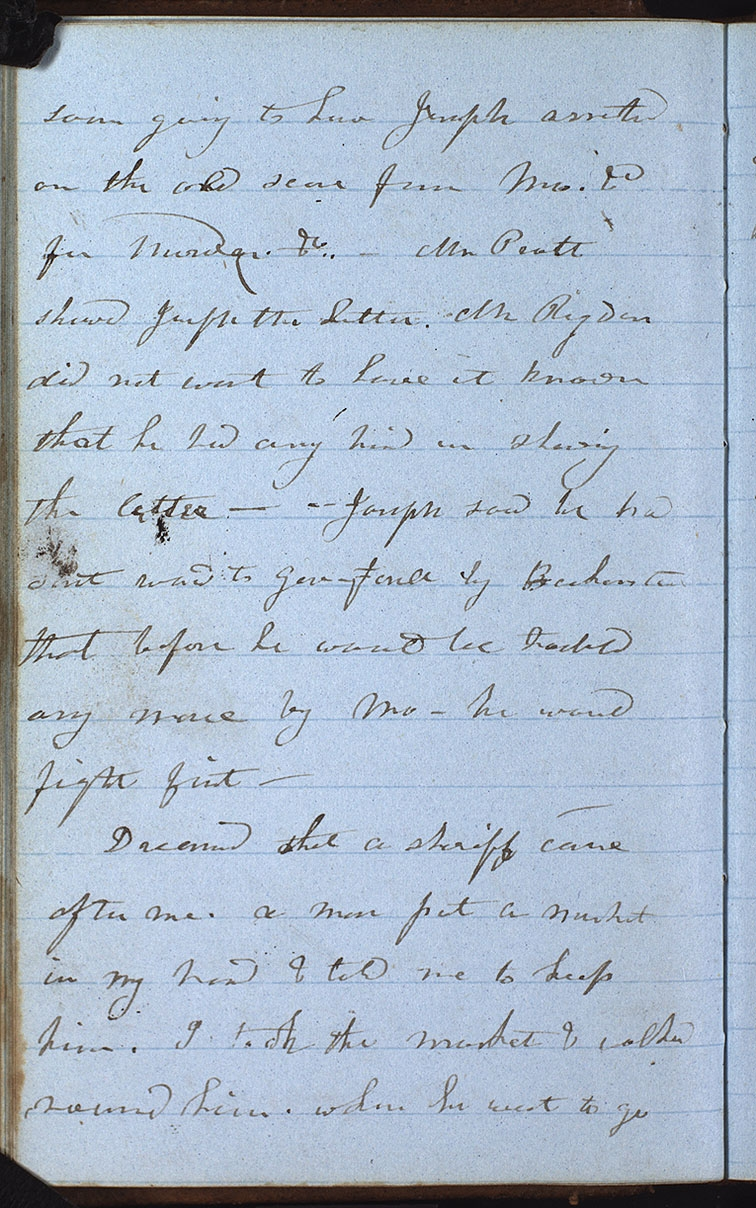 soon going to have Joseph arrested
on the old score from Mo. &
for Murder. &c. — Mr Pratt
shewd Joseph the letter. Mr Rigdon
did not want to have it known
that he had any hand in shewing
the letter — -- Joseph said he had
sent word to Gov Ford by Backenstos
that before he would be troubled
any more by Mo — he would
fight first —
Dreamed that a sheriff came
after me. a man put a musket
in my hand & told me to keep
him. I took the musket & walked
round him. when he went to go